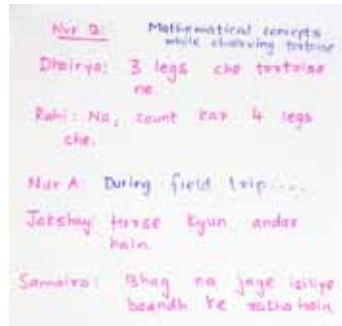 Nur B: Mathematical concepts
while observing tortoise
Dhairya: 3 legs che tortoise
ne.
Rahi: No, count kar 4 legs
che.
Nur A: During field trip....
Jakshay: horse kyun andar
hain.
Samaira: Bhag na jaye isiliye
baandh ke rakha hain.